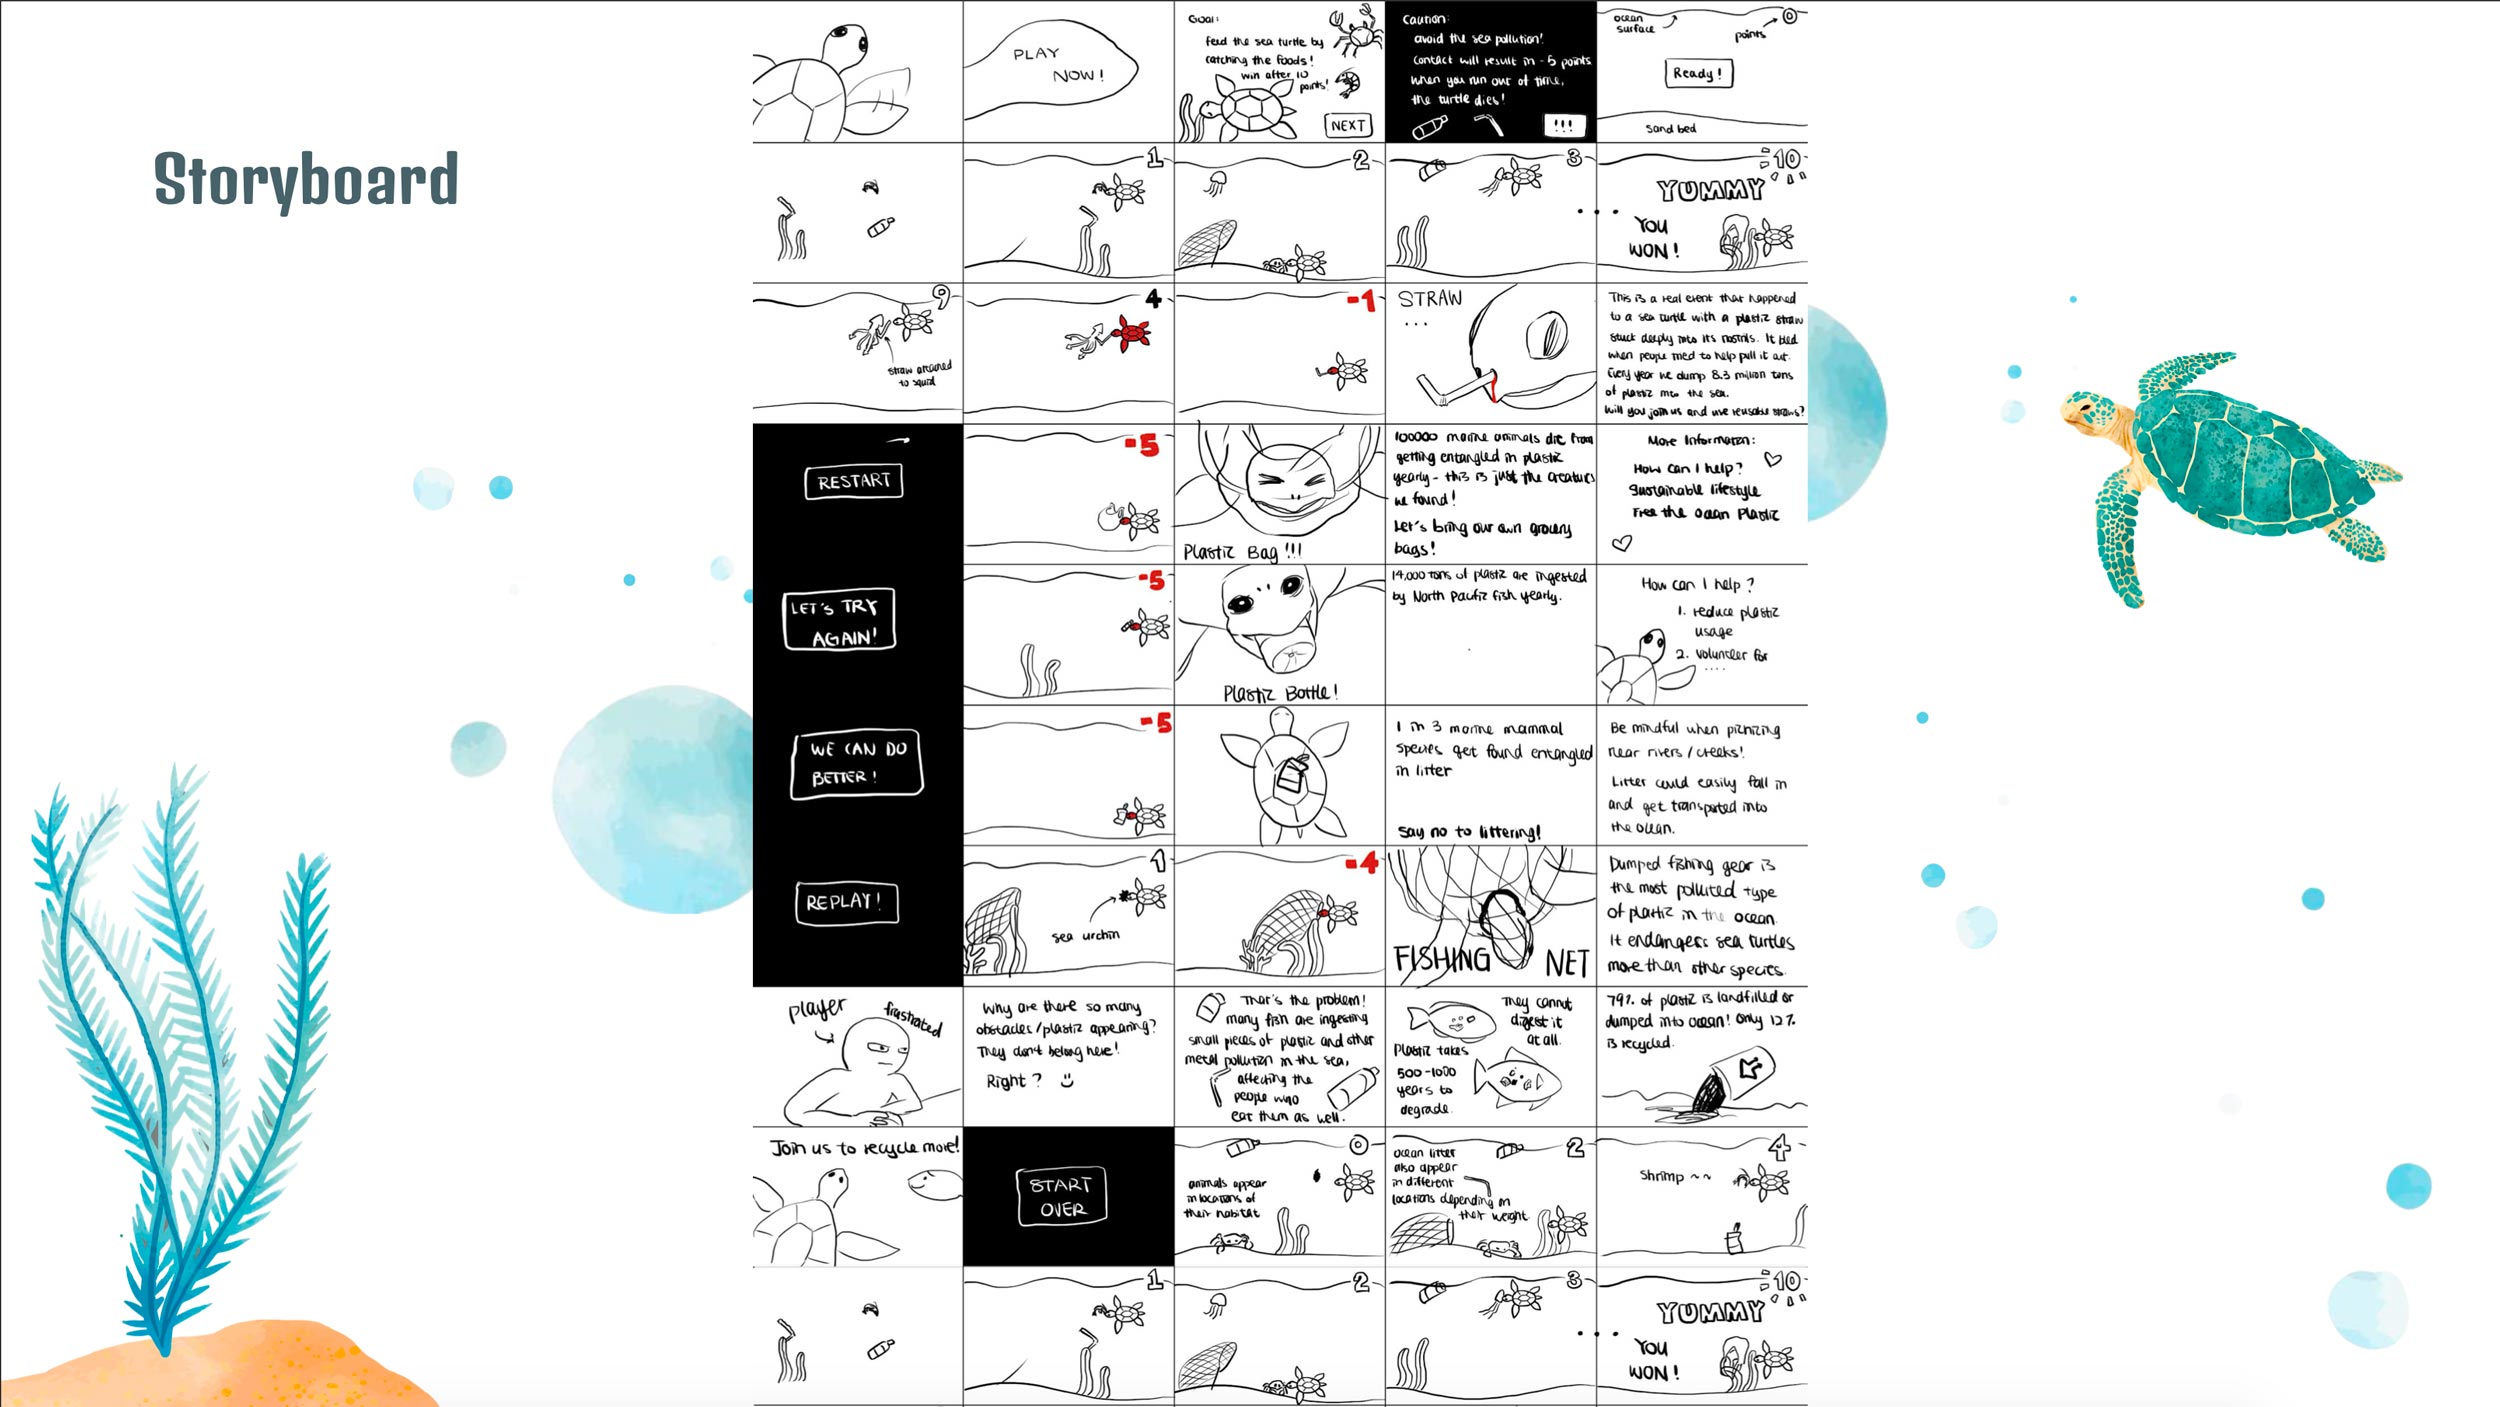 Storyboard
PLAY
NOW!
Goal:
feed the sea turtle by
catching the foods!
win after 10
points!
NEXT
Caution:
avoid the sea pollution!
contact will result in -5 points
when you run out of time,
the turtle dies!
!!!
ocean
surface
0
points
Ready!
sand bed
1
2
3
...
10
YUMMY
YOU
WON!
9
straw attached
to squid
4
-1
STRAW
...
This is a real event that happened
to a sea turtle with a plastic straw
stuck deeply into its nostrils. It bled
when people tried to help pull it out.
Every year we dump 8.3 million tons
of plastic into the sea.
Will you join us and use reusable straws?
RESTART
-5
Plastic Bag!!!
100000 marine animals die from
getting entangled in plastic
yearly - this is just the creatures
we found!
Let's bring our own grocery
bags!
More Information:
How can I help?
Sustainable lifestyle
Free the Ocean Plastic
LET'S TRY
AGAIN!
-5
Plastic Bottle!
14,000 tons of plastic are ingested
by North Pacific fish yearly.
How can I help?
1. reduce plastic
usage
2. volunteer for
....
WE CAN DO
BETTER!
-5
1 in 3 marine mammal
species get found entangled
in litter
say no to littering!
Be mindful when picnicing
near rivers/creeks!
Litter could easily fall in
and get transported into
the ocean.
REPLAY!
1
sea urchin
-4
FISHING NET
Dumped fishing gear is
the most polluted type
of plastic in the ocean.
It endangers sea turtles
more than other species.
player
frustrated
Why are there so many
obstacles/plastic appearing?
They don't belong here!
Right?
That's the problem!
many fish are ingesting
small pieces of plastic and other
metal pollution in the sea,
affecting the
people who
eat them as well.
They cannot
digest it
at all.
Plastic takes
500-1000
years to
degrade.
79% of plastic is landfilled or
dumped into ocean! Only 12%
is recycled.
Join us to recycle more!
START
OVER
0
animals appear
in locations of
their habitat
2
ocean litter
also appear
in different
locations depending on
their weight
4
Shrimp ~~
1
2
3
...
10
YUMMY
YOU
WON!